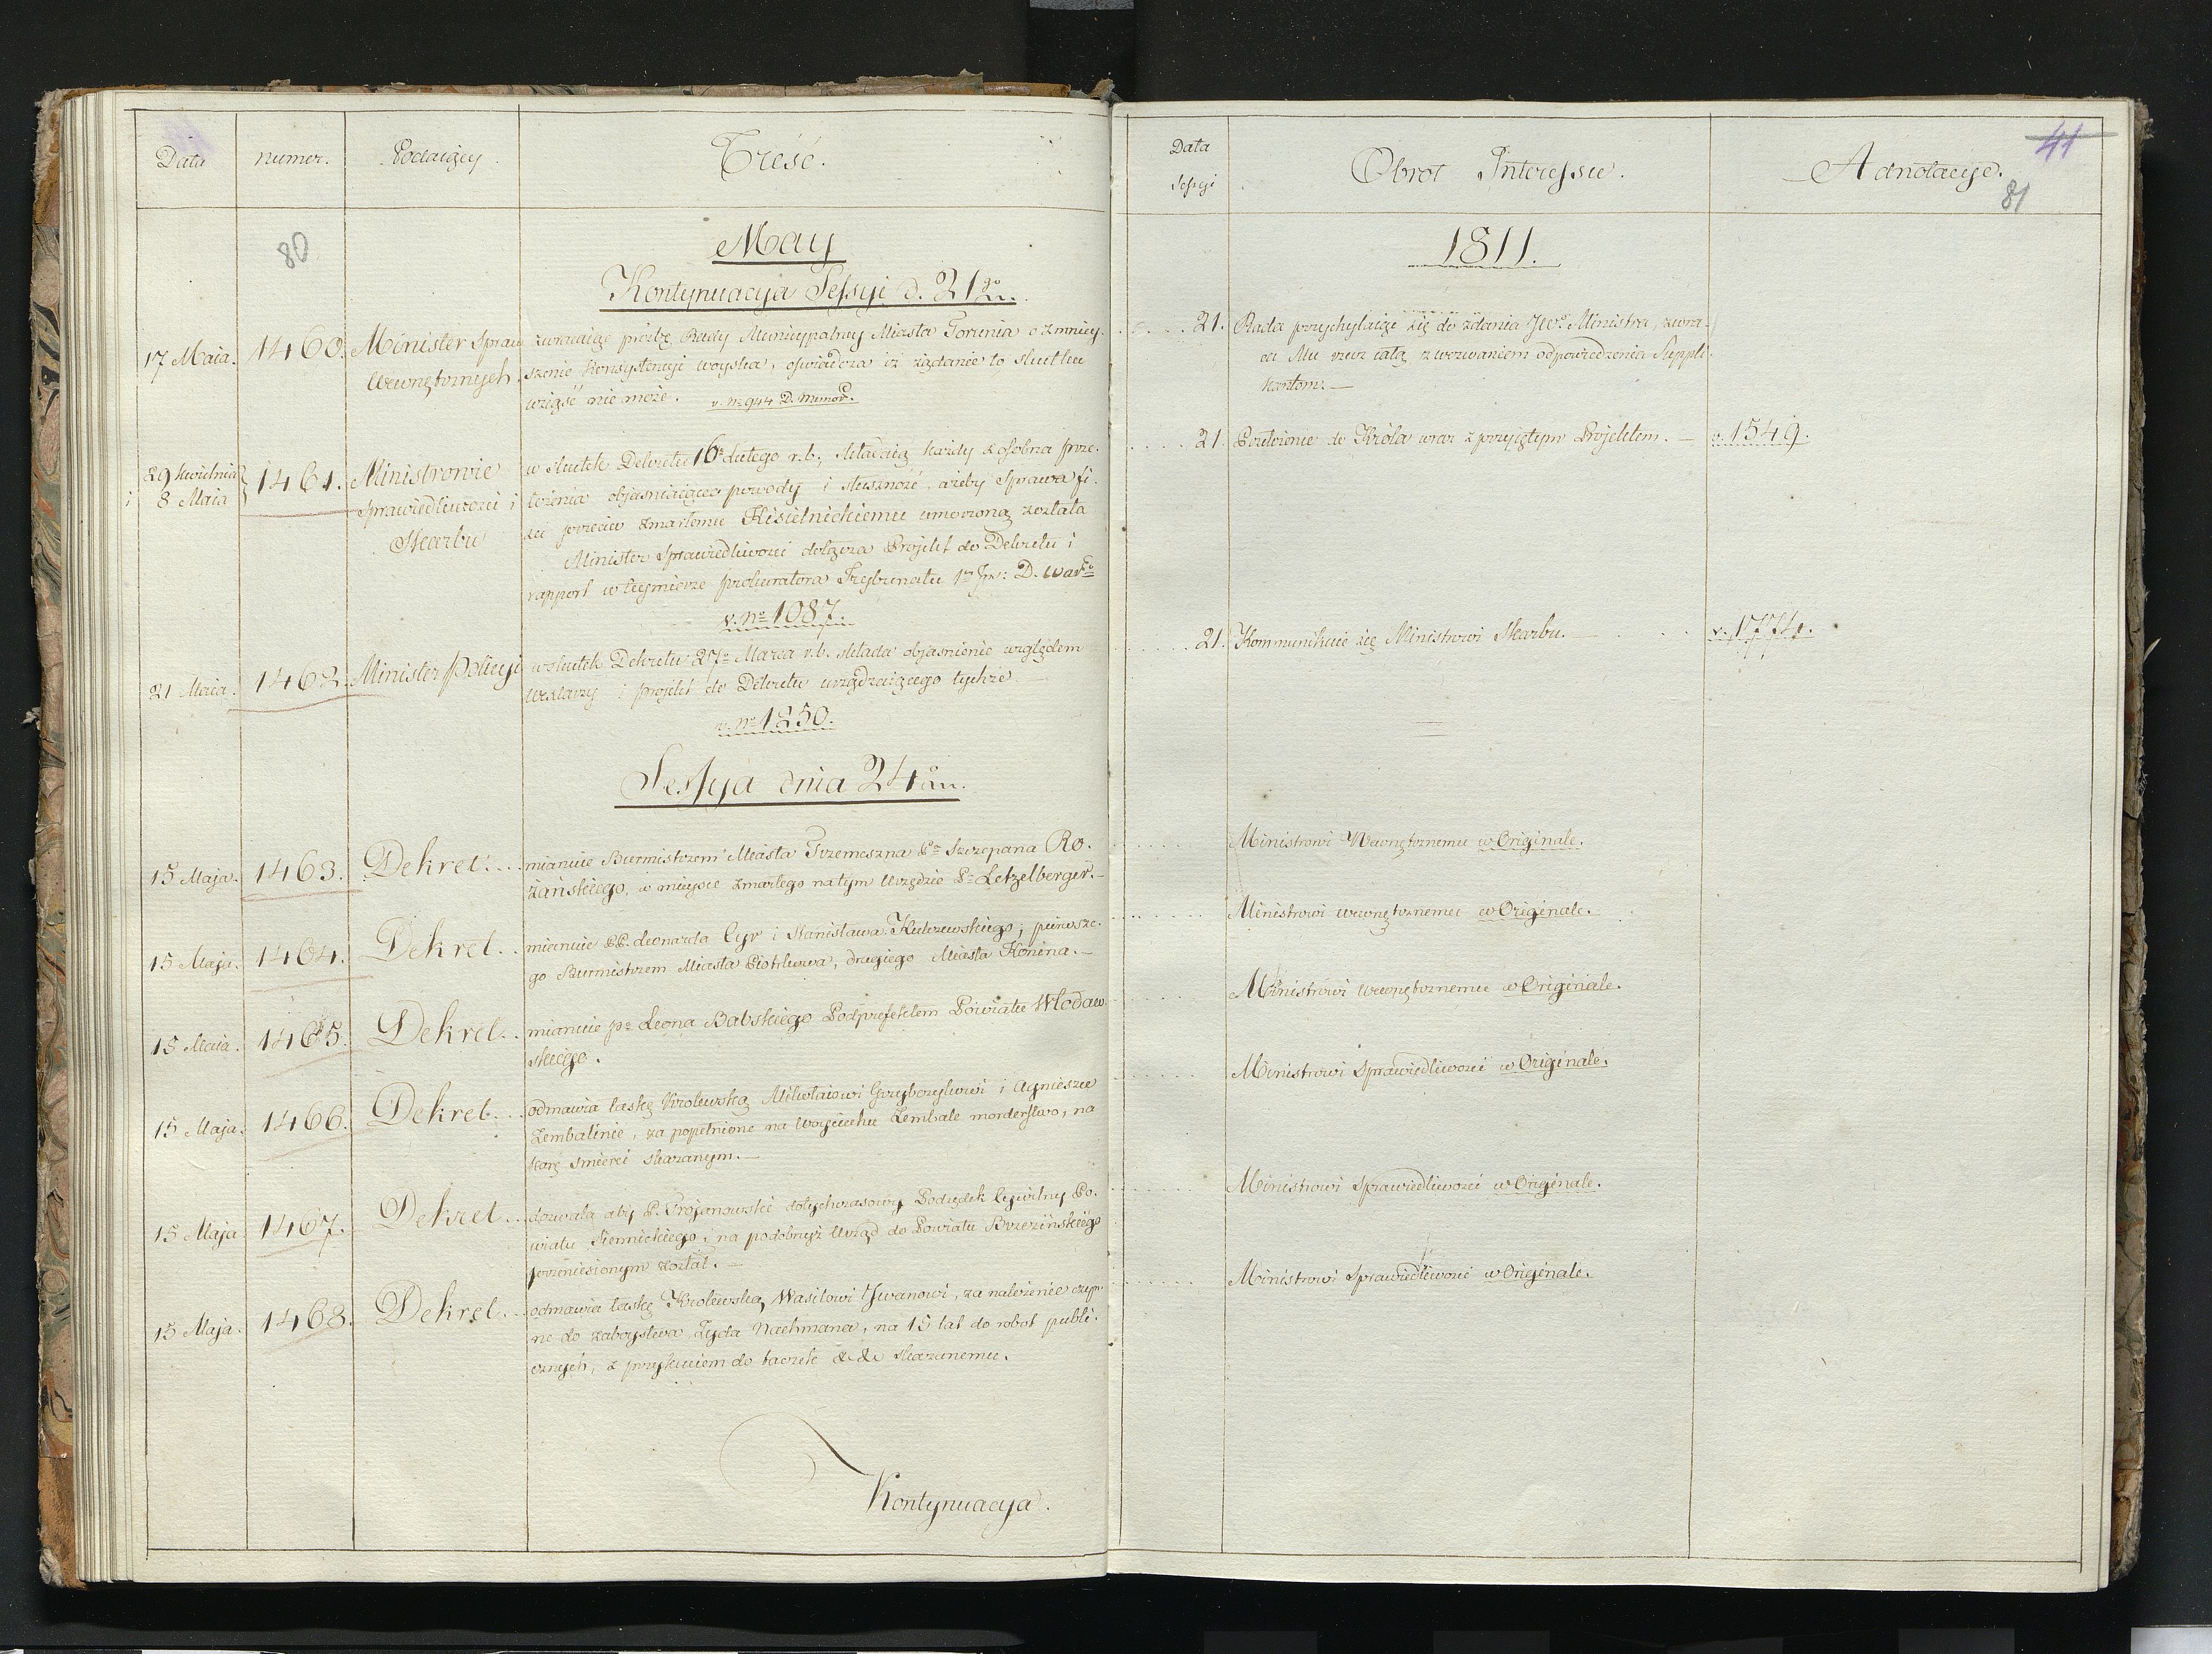 Data numer. Podaiący. Treść.
80
May
Kontynuacya Sessyi d. 21go m.
17 Maia. 1460. Minister Spraw
Wewnętrznych.
zwracaiąc prozbę Rady Municypalney Miasta Torunia o zmniey-
szenie konsystencyi woyska, oswiadcza iż ządanie to skutku
wziąść nie może. v. No 944 D. Memor.
29 Kwietnia
i 8 Maia
1461. Ministrowie
Sprawiedliwości i
Skarbu
w skutek Dekretu 16o Lutego r. b., składaią każdy z osobna prze-
łożenia objasniaiące powody i słuszność, ażeby Sprawa fi-
sci przeciw zmarłemu Kisielnickiemu umorzoną została
Minister Sprawiedliwości dołącza Projekt do Dekretu i
rapport w teymierze prokuratora Trybunału D. War
v. No 1087.
21 Maia. 1462. Minister Policyi
w skutek Dekretu 27o Marca r. b. składa objasnienie względem
i projekt do Dekretu urządzaiącego tychże
v. No 1250.
Sessya dnia 24 m.
15 Maja. 1463. Dekret. . . .
mianuie Burmistrzem Miasta Trzemeszna Pa Szczepana Ro-
żańskiego, w mieysce zmarłego na tym Urzędzie Pa Letzelberger.—
15 Maja. 1464. Dekret. . .
mianuie PP. Leonarda Cyr i Stanisława Kulczewskiego; pierwsze-
go Burmistrzem Miasta Piotrkowa, drugiego Miasta Konina.—
15 Maia. 1465. Dekret. . .
mianuie pa Leona Babskiego Podprefektem Powiatu Włodaw-
skiego.
15 Maja. 1466. Dekret. . .
odmawia łaskę Krolewską Mikołaiowi Grzyborzykowi i Agnieszce
Zembalinie, za popełnione na Woyciechu Zembale morderstwo, na
karę smierci skazanym.—
15 Maja 1467. Dekret . . .
dozwala aby P. Trojanowski dotychczasowy Podsędek Cywilny Po-
wiatu Siennickiego, na podobnyż Urząd do Powiatu Brzezińskiego
przeniesionym został.—
15 Maja. 1468. Dekret. . .
odmawia łaskę Krolewską Wasilowi Jwanowi, za należenie czyn-
ne do zaboystwa Zyda Nachmana, na 15 lat do robot publi-
cznych, z przykuciem do taczek &c &c skazanemu.
Kontynuacya.
Data
Sessyi
Obrot Interessu. Adnotacye.
41
81
1811.
21. Rada przychylaiąc się do zdania JWo Ministra, zwra-
ca Mu rzecz całą z wezwaniem odpowiedzenia Suppli-
kantom.—
21. Powtórnie do Króla wraz z przyiętym Projektem.— v. 1549.
21. Kommunikuie się Ministrowi Skarbu.— v. 1774.
Ministrowi Wewnętrznemu w Originale.
Ministrowi wewnętrznemu w Originale.
Ministrowi Wewnętrznemu w Originale.
Ministrowi Sprawiedliwości w Originale.
Ministrowi Sprawiedliwości w Originale.
Ministrowi Sprawiedliwości w Originale.